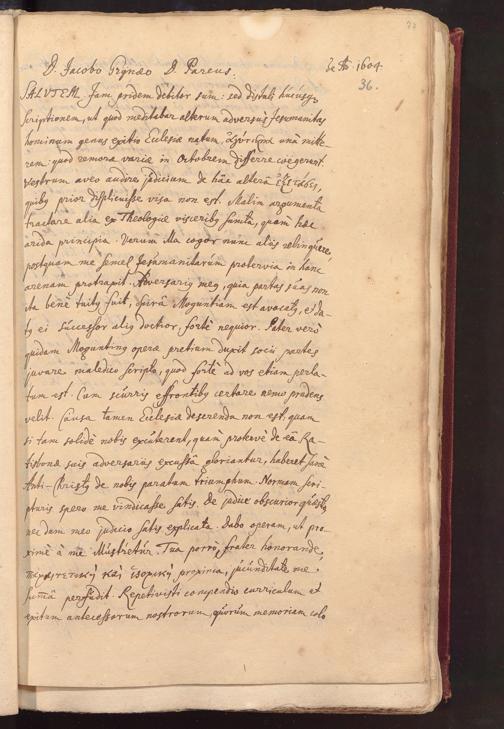 D. Jacobo Grynæo D. Pareus.
1604
36.
SALVTEM. Jam pridem debitor sum: sed distuli hucusq
scriptionem, ut quod meditabar alterum adversus Jesumanitas
hominum genus exitio Ecclesiæ natum, unà mitte-
rem: quod remoræ variæ in Octobrem differre coëgerunt.
Vestrum aveo audire judicium de hâc alterâ
quib9 prior displicuisse visa non est. Malim argumenta
tractare alia ex Theologiæ visceribus sumta, quàm hæc
arida principia. Verùm illa cogor nunc aliis relinquere,
postquam me semel Jesumanitarum protervia in hanc
arenam protraxit. Adversarius meus, quia partas suas non
ita benè tuitus fuit, Moguntiam est avocatus, & da-
tus ei successor alius doctior, fortè nequior. Pater verò
quidam Moguntinus operæ pretium duxit socii partes
juvare maledico scripto, quod fortè ad vos etiam perla-
tum est. Cum scurris effrontibus certare nemo prudens
velit. Causa tamen Ecclesiæ deserenda non est, quam
si tam solidè nobis excuterent, quàm protervè de eâ Ra-
tisbonæ suis adversariis excussâ gloriantur, haberet sanè
Anti-Christus de nobis paratum triumphum. Normam Scri-
pturis spero me vindicasse satis. De judice obscurior quæstio,
nec dum meo judicio satis explicata. Dabo operam, ut pro-
ximè à me illustretur. Tua porrò, frater honorande,
προπεμπτικὴ καὶ proxima, jucunditate me
summâ perfudit. Repetivisti compendio curriculum et
exitum antecessorum nostrorum, quorum memoriam colo